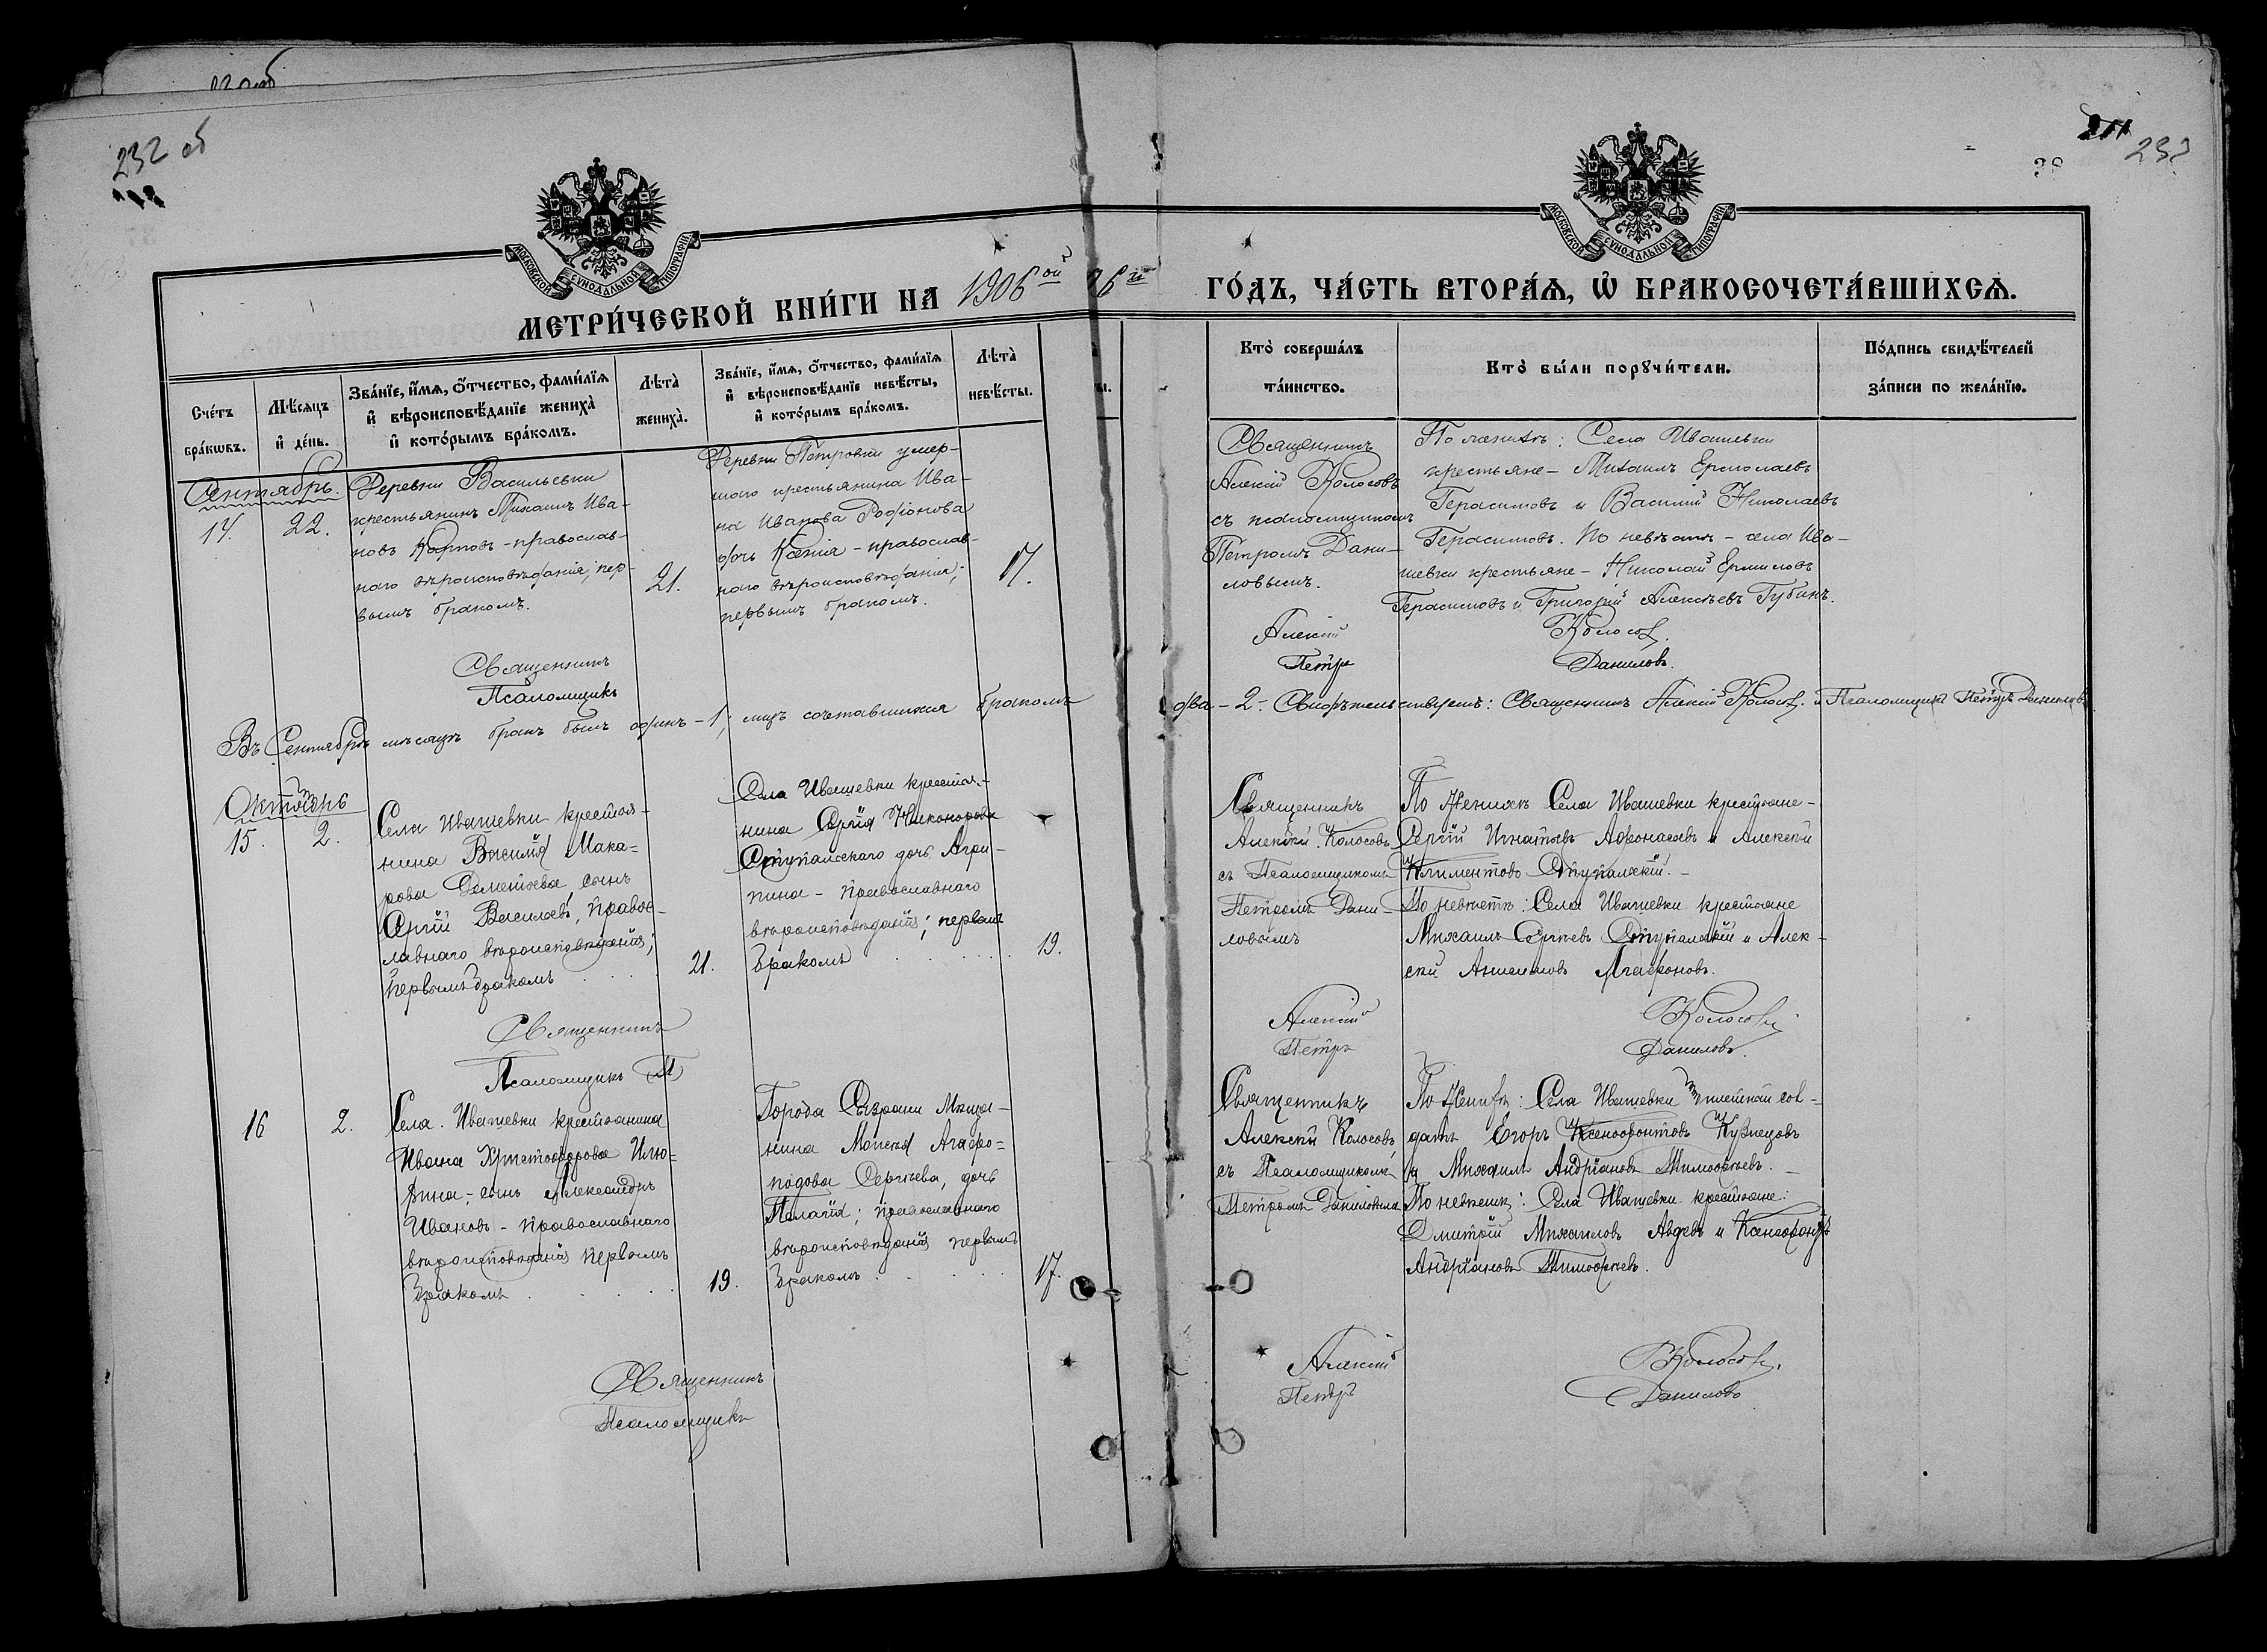 232 об
233
МОСКОВСКОЙ СѴНОДАЛЬНОЙ ТИПОГРАФІИ.
МОСКОВСКОЙ СѴНОДАЛЬНОЙ ТИПОГРАФІИ.
МЕТРИ́ЧЕСКОЙ КНИ́ГИ НА 1906 ой
ГО́ДЪ, ЧА́СТЬ ВТОРА́Я, Ѡ҆ БРАКОСОЧЕТА́ВШИХСЯ.
Сче́тъ бра́кѡвъ.
Мѣ́сяцъ и҆ де́нь.
Зва́нїе, и҆́мя, ѻ҆́тчество, фами́лїя
и҆ вѣроисповѣ́данїе жениха̀
и҆ кото́рымъ бра́комъ.
Лѣта̀ жениха̀.
Зва́нїе, и҆́мя, ѻ҆́тчество, фами́лїя
и҆ вѣроисповѣ́данїе невѣ́сты,
и҆ кото́рымъ бра́комъ.
Лѣта̀ невѣ́сты.
Кто̀ соверша́лъ
та́инство.
Кто̀ бы́ли порꙋчи́тели.
По́дпись свидѣ́телей
за́писи по жела́нїю.
Сентябрь.
14. 22.
Деревни Васильевки
крестьянинъ Михаилъ Ива-
новъ Карповъ - православ-
наго вѣроисповѣданія; пер-
вымъ бракомъ.
21.
Деревни Петровки умер-
шаго крестьянина Ива-
на Иванова Родіонова
дочь Ксенія - православ-
наго вѣроисповѣданія;
первымъ бракомъ.
17.
Священникъ
Алексій Колосовъ
съ псаломщикомъ
Петромъ Дани-
ловымъ.
По женихѣ: Села Ивашевки
крестьяне - Михаилъ Ермолаевъ
Герасимовъ и Василій Николаевъ
Герасимовъ. По невѣстѣ - села Ива-
шевки крестьяне - Николай Ермиловъ
Герасимовъ и Григорій Алексѣевъ Губинъ.
Священникъ Алексій Колосовъ.
Псаломщикъ Петръ Даниловъ.
Въ Сентябрѣ мѣсяцѣ бракъ былъ одинъ - 1; лицъ сочетавшихся бракомъ два - 2 - Свидѣтельствуетъ: Священникъ Алексій Колосовъ. и Псаломщикъ Петръ Даниловъ
Октябрь
15. 2.
Села Ивашевки крестья-
нина Василія Мака-
рова Дементьева, сынъ
Сергій Васильевъ, правос-
лавнаго вѣроисповѣданія;
первымъ бракомъ
21.
Села Ивашевки крестья-
нина Сергія Никонорова
Ступальскаго дочь Агри-
пина - православнаго
вѣроисповѣданія; первымъ
бракомъ
19.
Священникъ
Алексій Колосовъ
съ Псаломщикомъ
Петромъ Дани-
ловымъ
По женихѣ Села Ивашевки крестьяне -
Сергій Игнатьевъ Афонасьевъ и Алексѣй
Климентовъ Ступальскій. -
По невѣстѣ: Села Ивашевки крестьяне
Михаилъ Сергѣевъ Ступальскій и Алек-
сѣй Агафоновъ.
Священникъ Алексій Колосовъ
Псаломщикъ Петръ Даниловъ.
16 2.
Села Ивашевки крестьянина
Ивана Христофорова Илю-
хина - сынъ Александръ
Ивановъ - православнаго
вѣроисповѣданія первымъ
бракомъ
19.
Города Сызрани Мѣща-
нина Агафо-
подова Сергѣева, дочь
Пелагія; православнаго
вѣроисповѣданія первымъ
бракомъ
17.
Священникъ
Алексѣй Колосовъ,
съ Псаломщикомъ
Петромъ Даниловымъ
По женихѣ: Села Ивашевки запасный сол-
датъ Егоръ Ксенофонтовъ Кузнецовъ
и Михаилъ Андріановъ Тимофѣевъ. -
По невѣстѣ: Села Ивашевки крестьяне:
Дмитрій Михаиловъ Авдѣевъ и Ксенофонтъ
Андріановъ Тимофѣевъ.
Священникъ Алексій Колосовъ.
Псаломщикъ Петръ Даниловъ